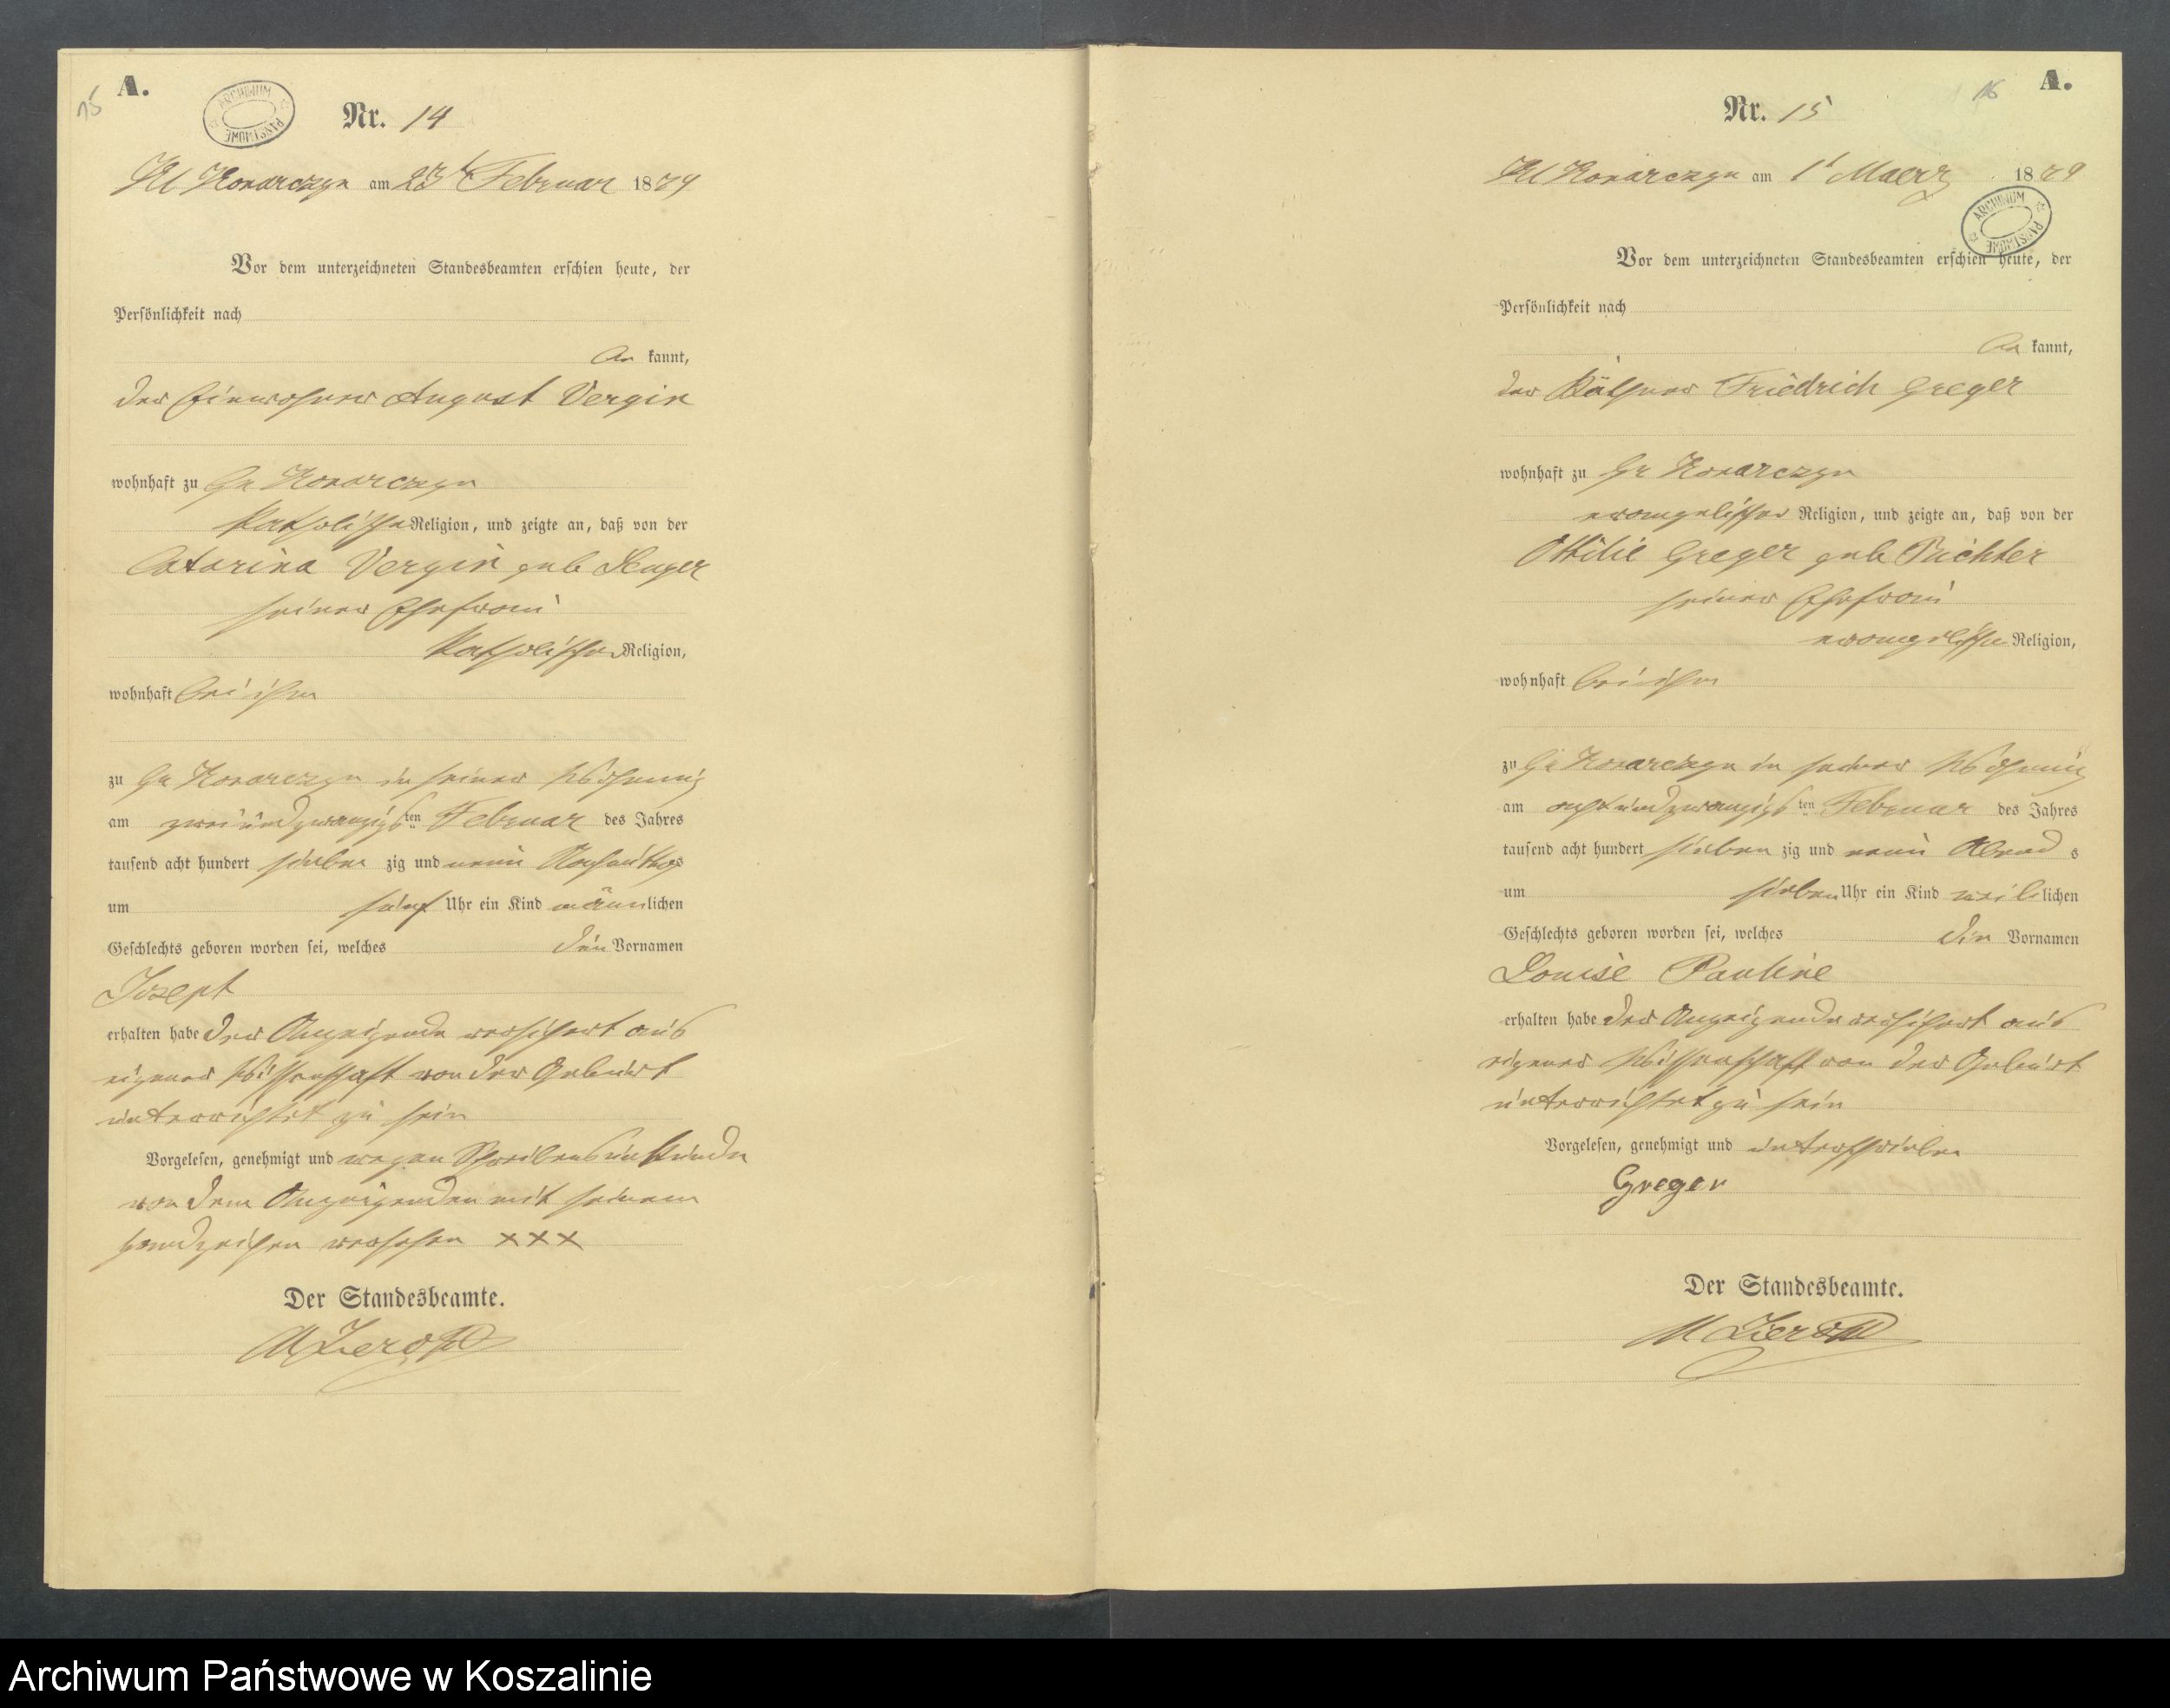 15
A.
ARCHIWUM PAŃSTWOWE
Nr. 14
Kl Konarczyn am 23t Februar 1879
Vor dem unterzeichneten Standesbeamten erschien heute, der
Persönlichkeit nach
be kannt,
der Einwohner August Vergin
wohnhaft zu Gr Konarczyn
katholischer Religion, und zeigte an, daß von der
Catarina Vergin geb
seiner Ehefrau
katholischer Religion,
wohnhaft bei ihm
zu Gr Konarczyn in seiner Wohnung
am zweiundzwanzigsten Februar des Jahres
tausend acht hundert sieben zig und neun Nachmittags
um fünf Uhr ein Kind männlichen
Geschlechts geboren worden sei, welches den Vornamen
Josept
erhalten habe der Anzeigende versichert aus
eigener Wissenschaft von der Geburt
unterrichtet zu sein
Vorgelesen, genehmigt und wegen Schreibensunkunde
von dem Anzeigenden mit seinem
Handzeichen versehen XXX
Der Standesbeamte.
16
A.
Nr. 15
ARCHIWUM PAŃSTWOWE
Kl Konarczyn am 1t Maerz 1879
Vor dem unterzeichneten Standesbeamten erschien heute, der
Persönlichkeit nach
be kannt,
der Käthner Friedrich Greger
wohnhaft zu Gr Konarczyn
evangelischer Religion, und zeigte an, daß von der
Ottilie Greger geb Püchter
seiner Ehefrau
evangelischer Religion,
wohnhaft bei ihm
zu Gr Konarczyn in seiner Wohnung
am achtundzwanzigsten Februar des Jahres
tausend acht hundert sieben zig und neun Abend s
um sieben Uhr ein Kind weiblichen
Geschlechts geboren worden sei, welches die Vornamen
Louise Pauline
erhalten habe der Anzeigende versichert aus
eigener Wissenschaft von der Geburt
unterrichtet zu sein
Vorgelesen, genehmigt und unterschrieben
Greger
Der Standesbeamte.
Archiwum Państwowe w Koszalinie